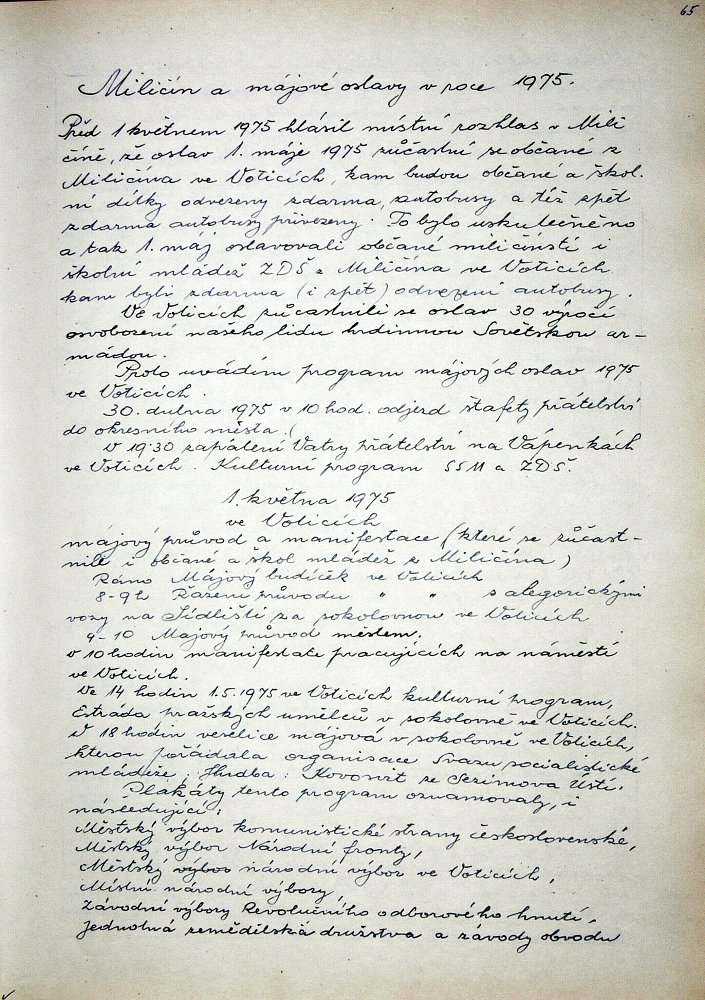 65
Miličín a májové oslavy v roce 1975.
Před 1 květnem 1975 hlásil místní rozhlas v Mili
číně, že oslav 1. máje 1975 zúčastní se občané z
Miličína ve Voticích, kam budou občané a škol.
ní dítky odvezeny zdarma, autobusy a též zpět
zdarma autobusy přivezeny. To bylo uskutečněno
a tak 1. maj oslavovali občané miličínští i
školní mládež ZDŠ z Miličína ve Voticích
kam byli zdarma (i zpět) odvezeni autobusy.
Ve Voticích zúčastnili se oslav 30 výročí
osvobození našeho lidu hrdinnou Sovětskou ar-
mádou.
Proto uvádím program májových oslav 1975
ve Voticích.
30. dubna 1975 v 10 hod. odjezd štafety přátelství
do okresního města.
V 19.30 zapálení Vatry přátelství na Vápenkách
ve Voticích. Kulturní program SSM a ZDŠ.
1. května 1975
ve Voticích
májový průvod a manifestace (které se zúčast-
nili i občané a škol mládež z Miličína)
Ráno Májový budíček ve Voticích
8-9h Řazení průvodu " " s alegorickými
vozy na Sídlišti za sokolovnou ve Voticích
9-10 Majový průvod městem.
v 10 hodin manifestace pracujících na náměstí
ve Voticích.
Ve 14 hodin 1.5.1975 ve Voticích kulturní program,
Estráda pražských umělců v sokolovně ve Voticích.
V 18 hodin veselice májová v sokolovně ve Voticích,
kterou pořádala organisace Svazu socialistické
mládeže; Hudba: Kovosvit ze Sezimova Ústí.
Plakáty tento program oznamovaly, i
následující:
Městský výbor komunistické strany československé,
Městský výbor Národní fronty,
Městský výbor národní výbor ve Voticích,
Místní národní výbory,
Závodní výbory Revolučního odborového hnutí,
Jednotná zemědělská družstva a závody obvodu